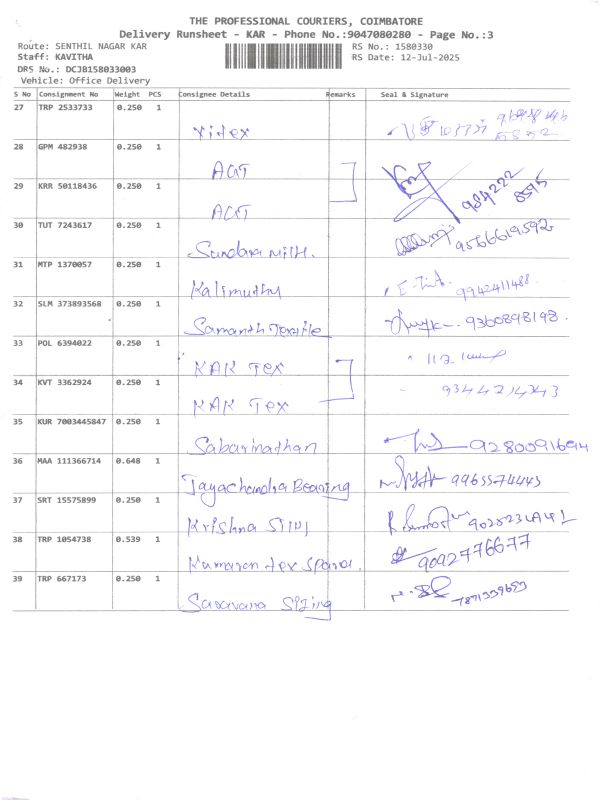 THE PROFESSIONAL COURIERS, COIMBATORE
Delivery Runsheet - KAR - Phone No.:9047080280 - Page No.:3
Route: SENTHIL NAGAR KAR RS No.: 1580330
Staff: KAVITHA RS Date: 12-Jul-2025
DRS No.: DCJB158033003
Vehicle: Office Delivery
S No Consignment No Weight PCS Consignee Details Remarks Seal & Signature
27 TRP 2533733 0.250 1
Vitex
28 GPM 482938 0.250 1
AGT
29 KRR 50118436 0.250 1
AGT 984222 8595
30 TUT 7243617 0.250 1
Sundara Mills. 9566619592
31 MTP 1370057 0.250 1
Kalimuthu 9942411488
32 SLM 373893568 0.250 1
Samanth Textile 9360898198
33 POL 6394022 0.250 1
KAK Tex
34 KVT 3362924 0.250 1
KAK Tex 9344214343
35 KUR 7003445847 0.250 1
Sabarinathan 9280091694
36 MAA 111366714 0.648 1
Jayachandra Bearing 9965574443
37 SRT 15575899 0.250 1
Krishna
38 TRP 1054738 0.539 1
Kumaran tex Spares. 9092776677
39 TRP 667173 0.250 1
Saravana Sizing 7871339653